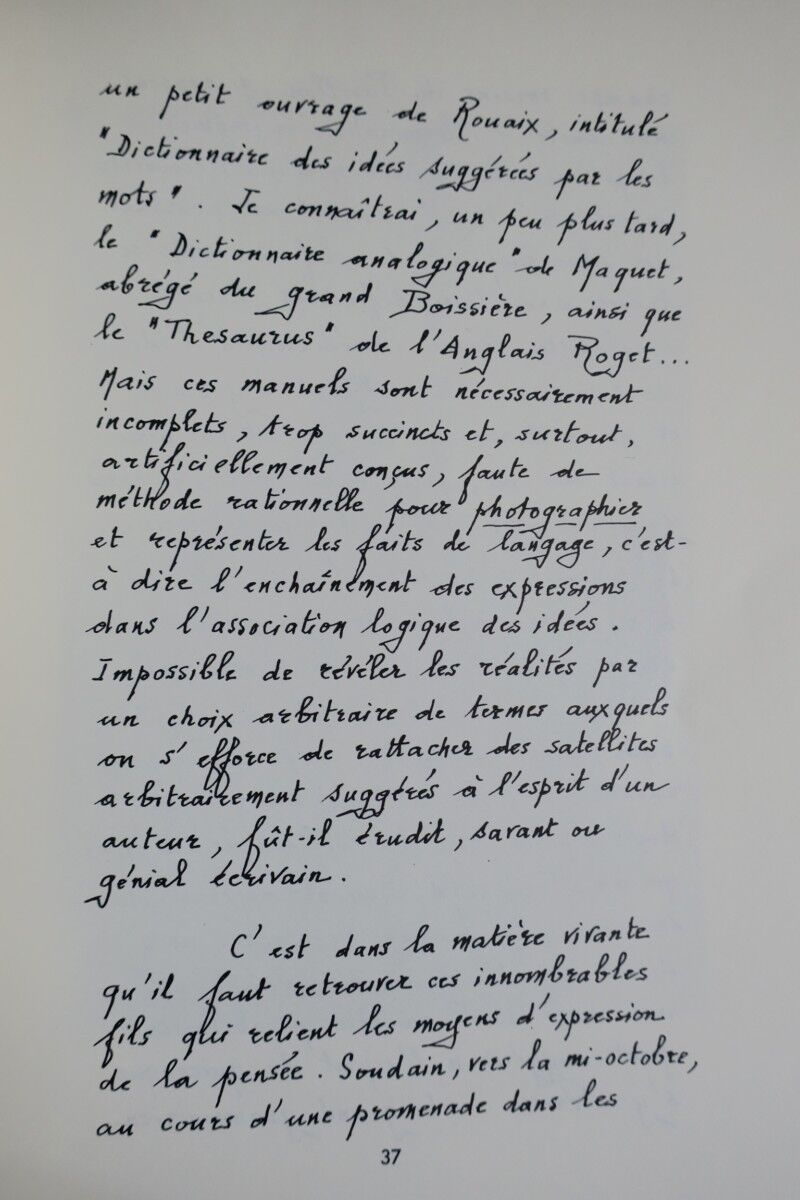 un petit ouvrage de Rouaix, intitulé
"Dictionnaire des idées suggérées par les
mots". Je connaîtrai, un peu plus tard,
le "Dictionnaire analogique" de Maquet,
abrégé du grand Boissière, ainsi que
le "Thesaurus" de l'Anglais Roget...
Mais ces manuels sont nécessairement
incomplets, trop succincts et, surtout,
artificiellement conçus, faute de
méthode rationnelle pour photographier
et représenter les faits de langage, c'est-
à dire l'enchaînement des expressions
dans l'association logique des idées.
Impossible de révéler les réalités par
un choix arbitraire de termes auxquels
on s'efforce de rattacher des satellites
arbitrairement suggérés à l'esprit d'un
auteur, fût-il érudit, savant ou
génial écrivain.
C'est dans la matière vivante
qu'il faut retrouver ces innombrables
fils qui relient les moyens d'expression
de la pensée. Soudain, vers la mi-octobre,
au cours d'une promenade dans les
37